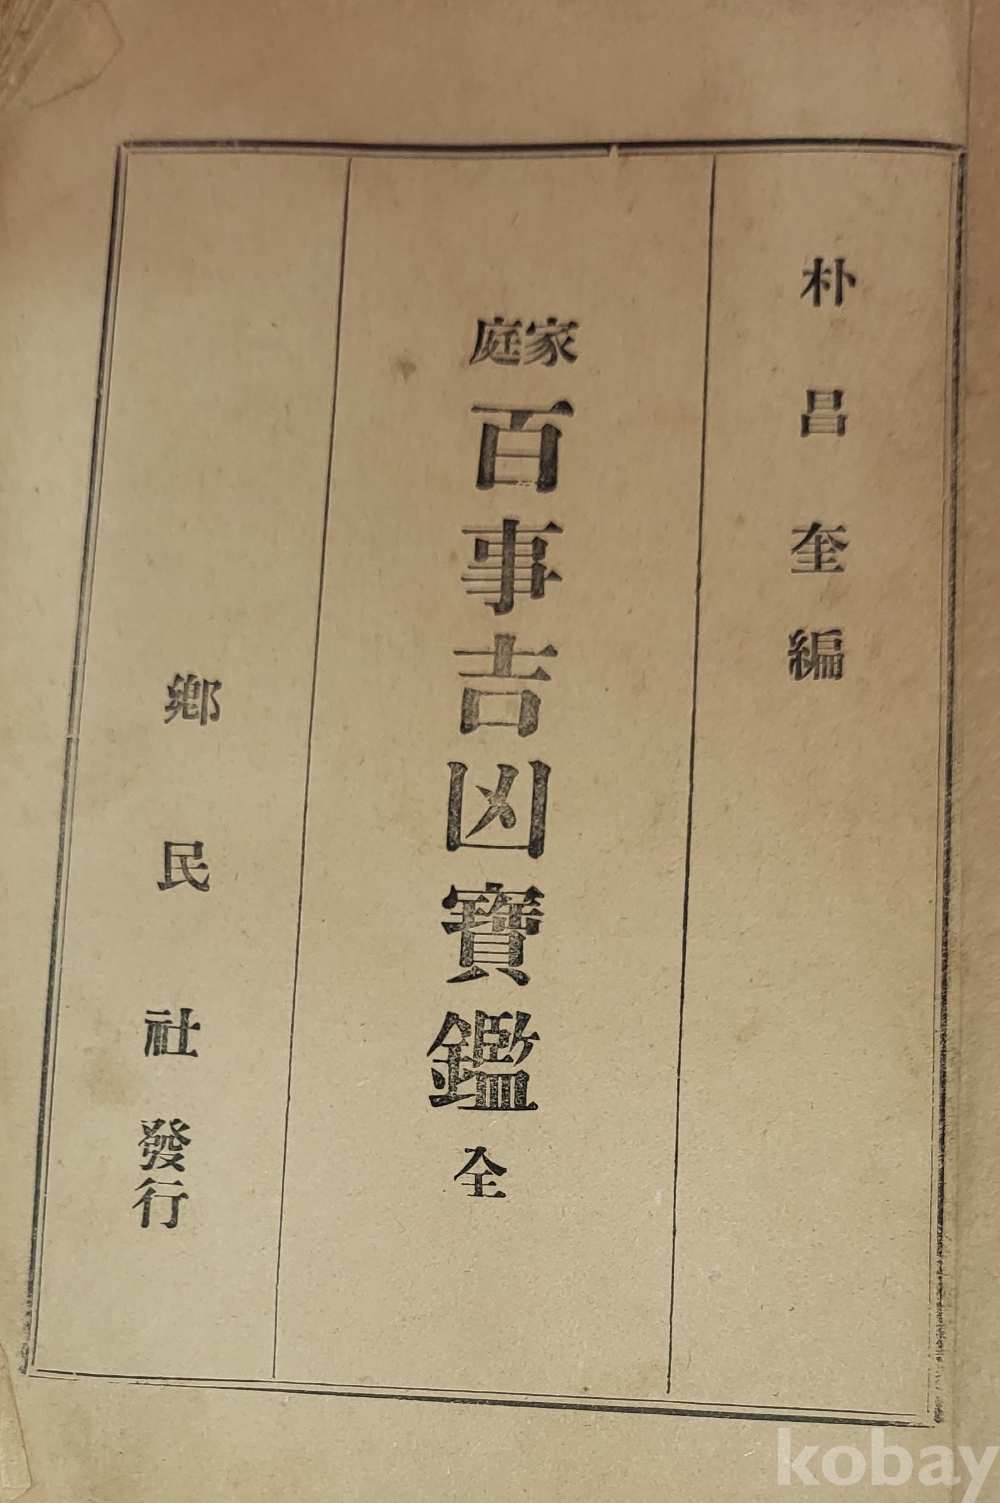 朴昌奎編
家庭百事吉凶寶鑑全
鄕民社發行
kobay